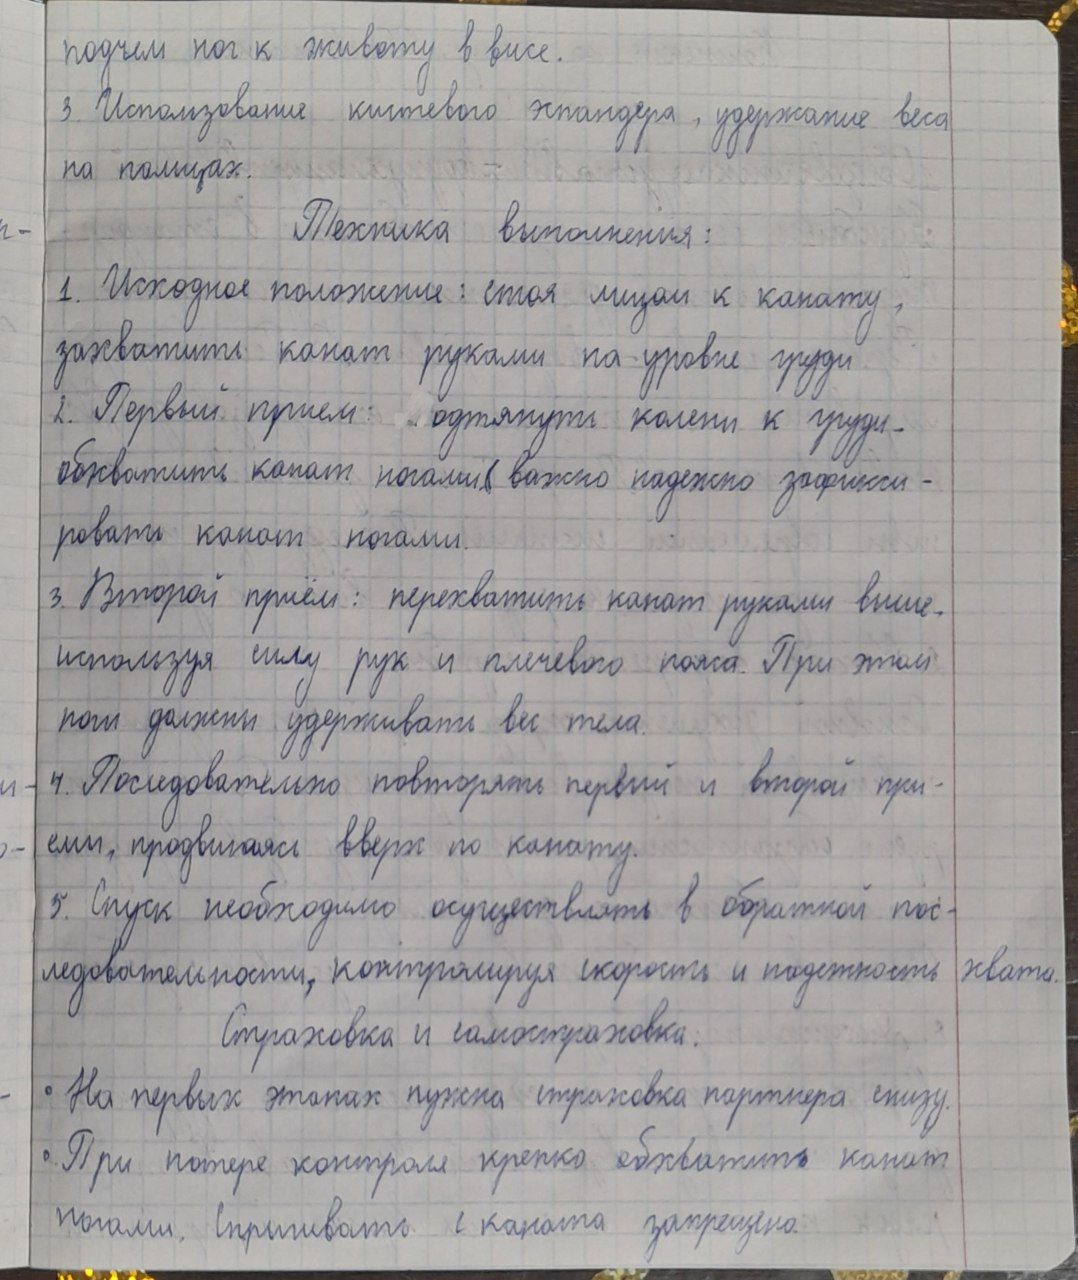 подъем ног к животу в висе.
3. Использование кистевого эспандера, удержание веса
на пальцах.
Техника выполнения:
1. Исходное положение: стоя лицом к канату,
захватить канат руками на уровне груди
2. Первый прием: подтянуть колени к груди,
обхватить канат ногами (важно надежно зафикси-
ровать канат ногами.
3. Второй приём: перехватить канат руками выше,
используя силу рук и плечевого пояса. При этом
ноги должны удерживать вес тела.
4. Последовательно повторять первый и второй при-
емы, продвигаясь вверх по канату.
5. Спуск необходимо осуществлять в обратной пос-
ледовательности, контролируя скорость и надежность хвата.
Страховка и самостраховка.
• На первых этапах нужна страховка партнера снизу.
• При потере контроля крепко обхватить канат
ногами. Спрыгивать с каната запрещено.